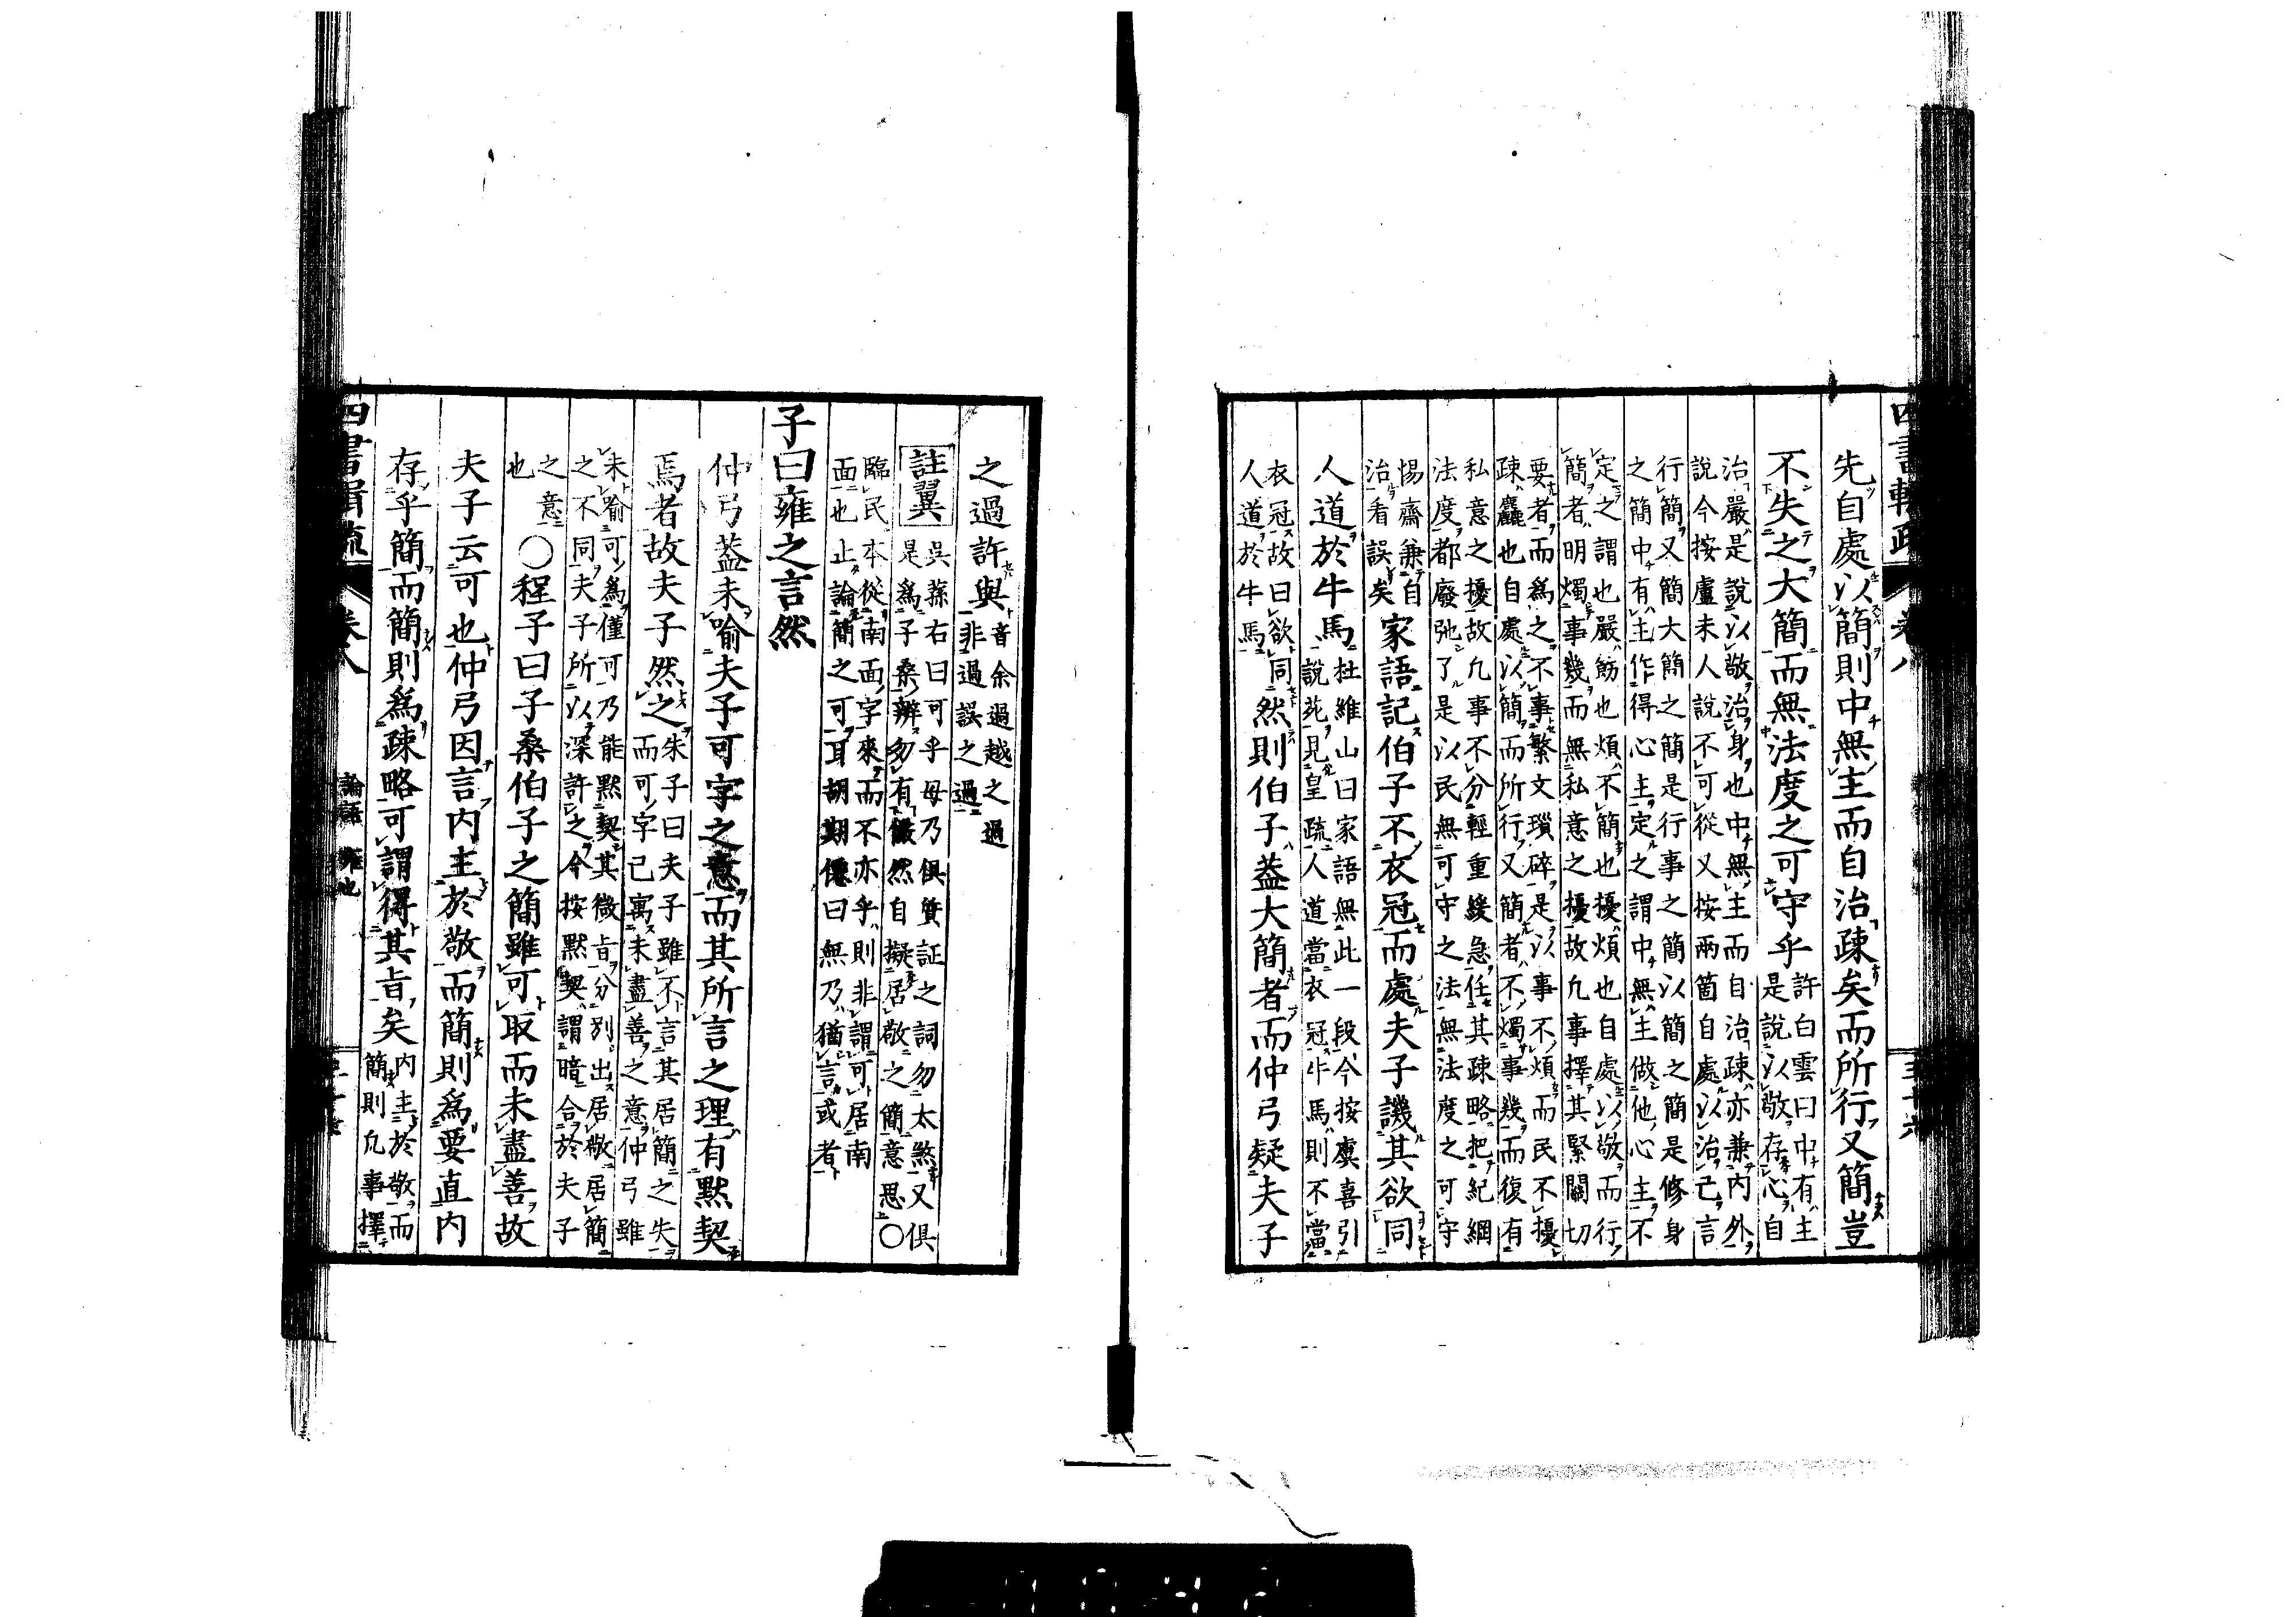 四書輯疏 卷八
先自處以簡則中無主而自治疎矣而所行又簡豈
不失之大簡而無法度之可守乎許白雲曰中有主
是說以敬存心自
治嚴是說以敬治身也中無主而自治疎亦兼内外
說今按盧未人說不可從又按兩箇自處以治己言
行簡又簡大簡之簡是行事之簡以簡之簡是修身
之簡中有主作得心主定之謂中無主做他心主不
定之謂也嚴飭也煩不簡也擾煩也自處以敬而行
簡者明燭事幾而無私意之擾故凡事擇其緊關切
要者而爲之不事繁文瑣碎是以事不煩而民不擾
疎麤也自處以簡而所行又簡者不燭事幾而復有
私意之擾故凡事不分輕重緩急任其疎略把紀綱
法度都廢弛了是以民無可守之法無法度之可守
惕齋兼自
治看誤矣家語記伯子不衣冠而處夫子譏其欲同
人道於牛馬杜維山曰家語無此一段今按虞喜引
說苑見皇疏人道當衣冠牛馬則不當
衣冠故曰欲同
人道於牛馬然則伯子葢大簡者而仲弓疑夫子
之過許與音余過越之過
非過誤之過
註翼吳蓀右曰可乎毋乃俱質証之詞勿太煞又俱
是爲子桑辨勿有儼然自擬居敬之簡意思○
臨民本從南面字來而不亦乎則非謂可居南
面也止論簡之可耳胡期僊曰無乃猶言或者
子曰雍之言然
仲弓葢未喻夫子可字之意而其所言之理有默契
焉者故夫子然之朱子曰夫子雖不言其居簡之失
而可字已寓未盡善之意仲弓雖
未喻可爲僅可乃能默契其微㫖分别出居敬居簡
之不同夫子所以深許之今按默契謂暗合於夫子
之意
也○程子曰子桑伯子之簡雖可取而未盡善故
夫子云可也仲弓因言内主於敬而簡則爲要直内
存乎簡而簡則爲疎略可謂得其㫖矣内主於敬而
簡則凡事擇
四書輯疏 卷八 論語 雍也